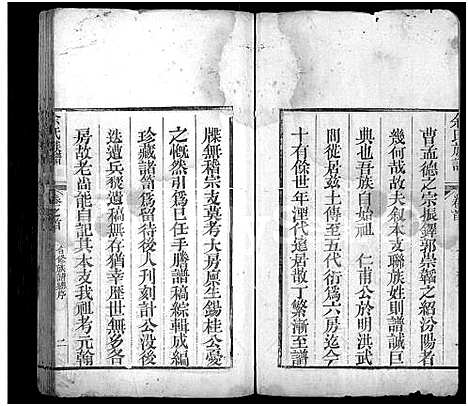 曹孟德之宗振鐸郭崇韜之紹汾陽者
幾何哉故夫叙本支聯族姓則譜誠巨
典也吾族自始祖 仁甫公於明洪武
間從居兹土傳至五代衍爲六房迄今
十有餘世年湮代遠居散丁繁漸至譜
牒無稽宗支莫考大房廩生錫桂公憂
之慨然引爲巳任手謄譜稿綜輯成編
珍藏諸笥爲留待後人刋刻計公没後
迭遭兵燹遺稿無存猶幸歴世無多各
房故老尚能自記其本支我祖考元翰
余氏族譜
卷之首
合修族譜總序
二